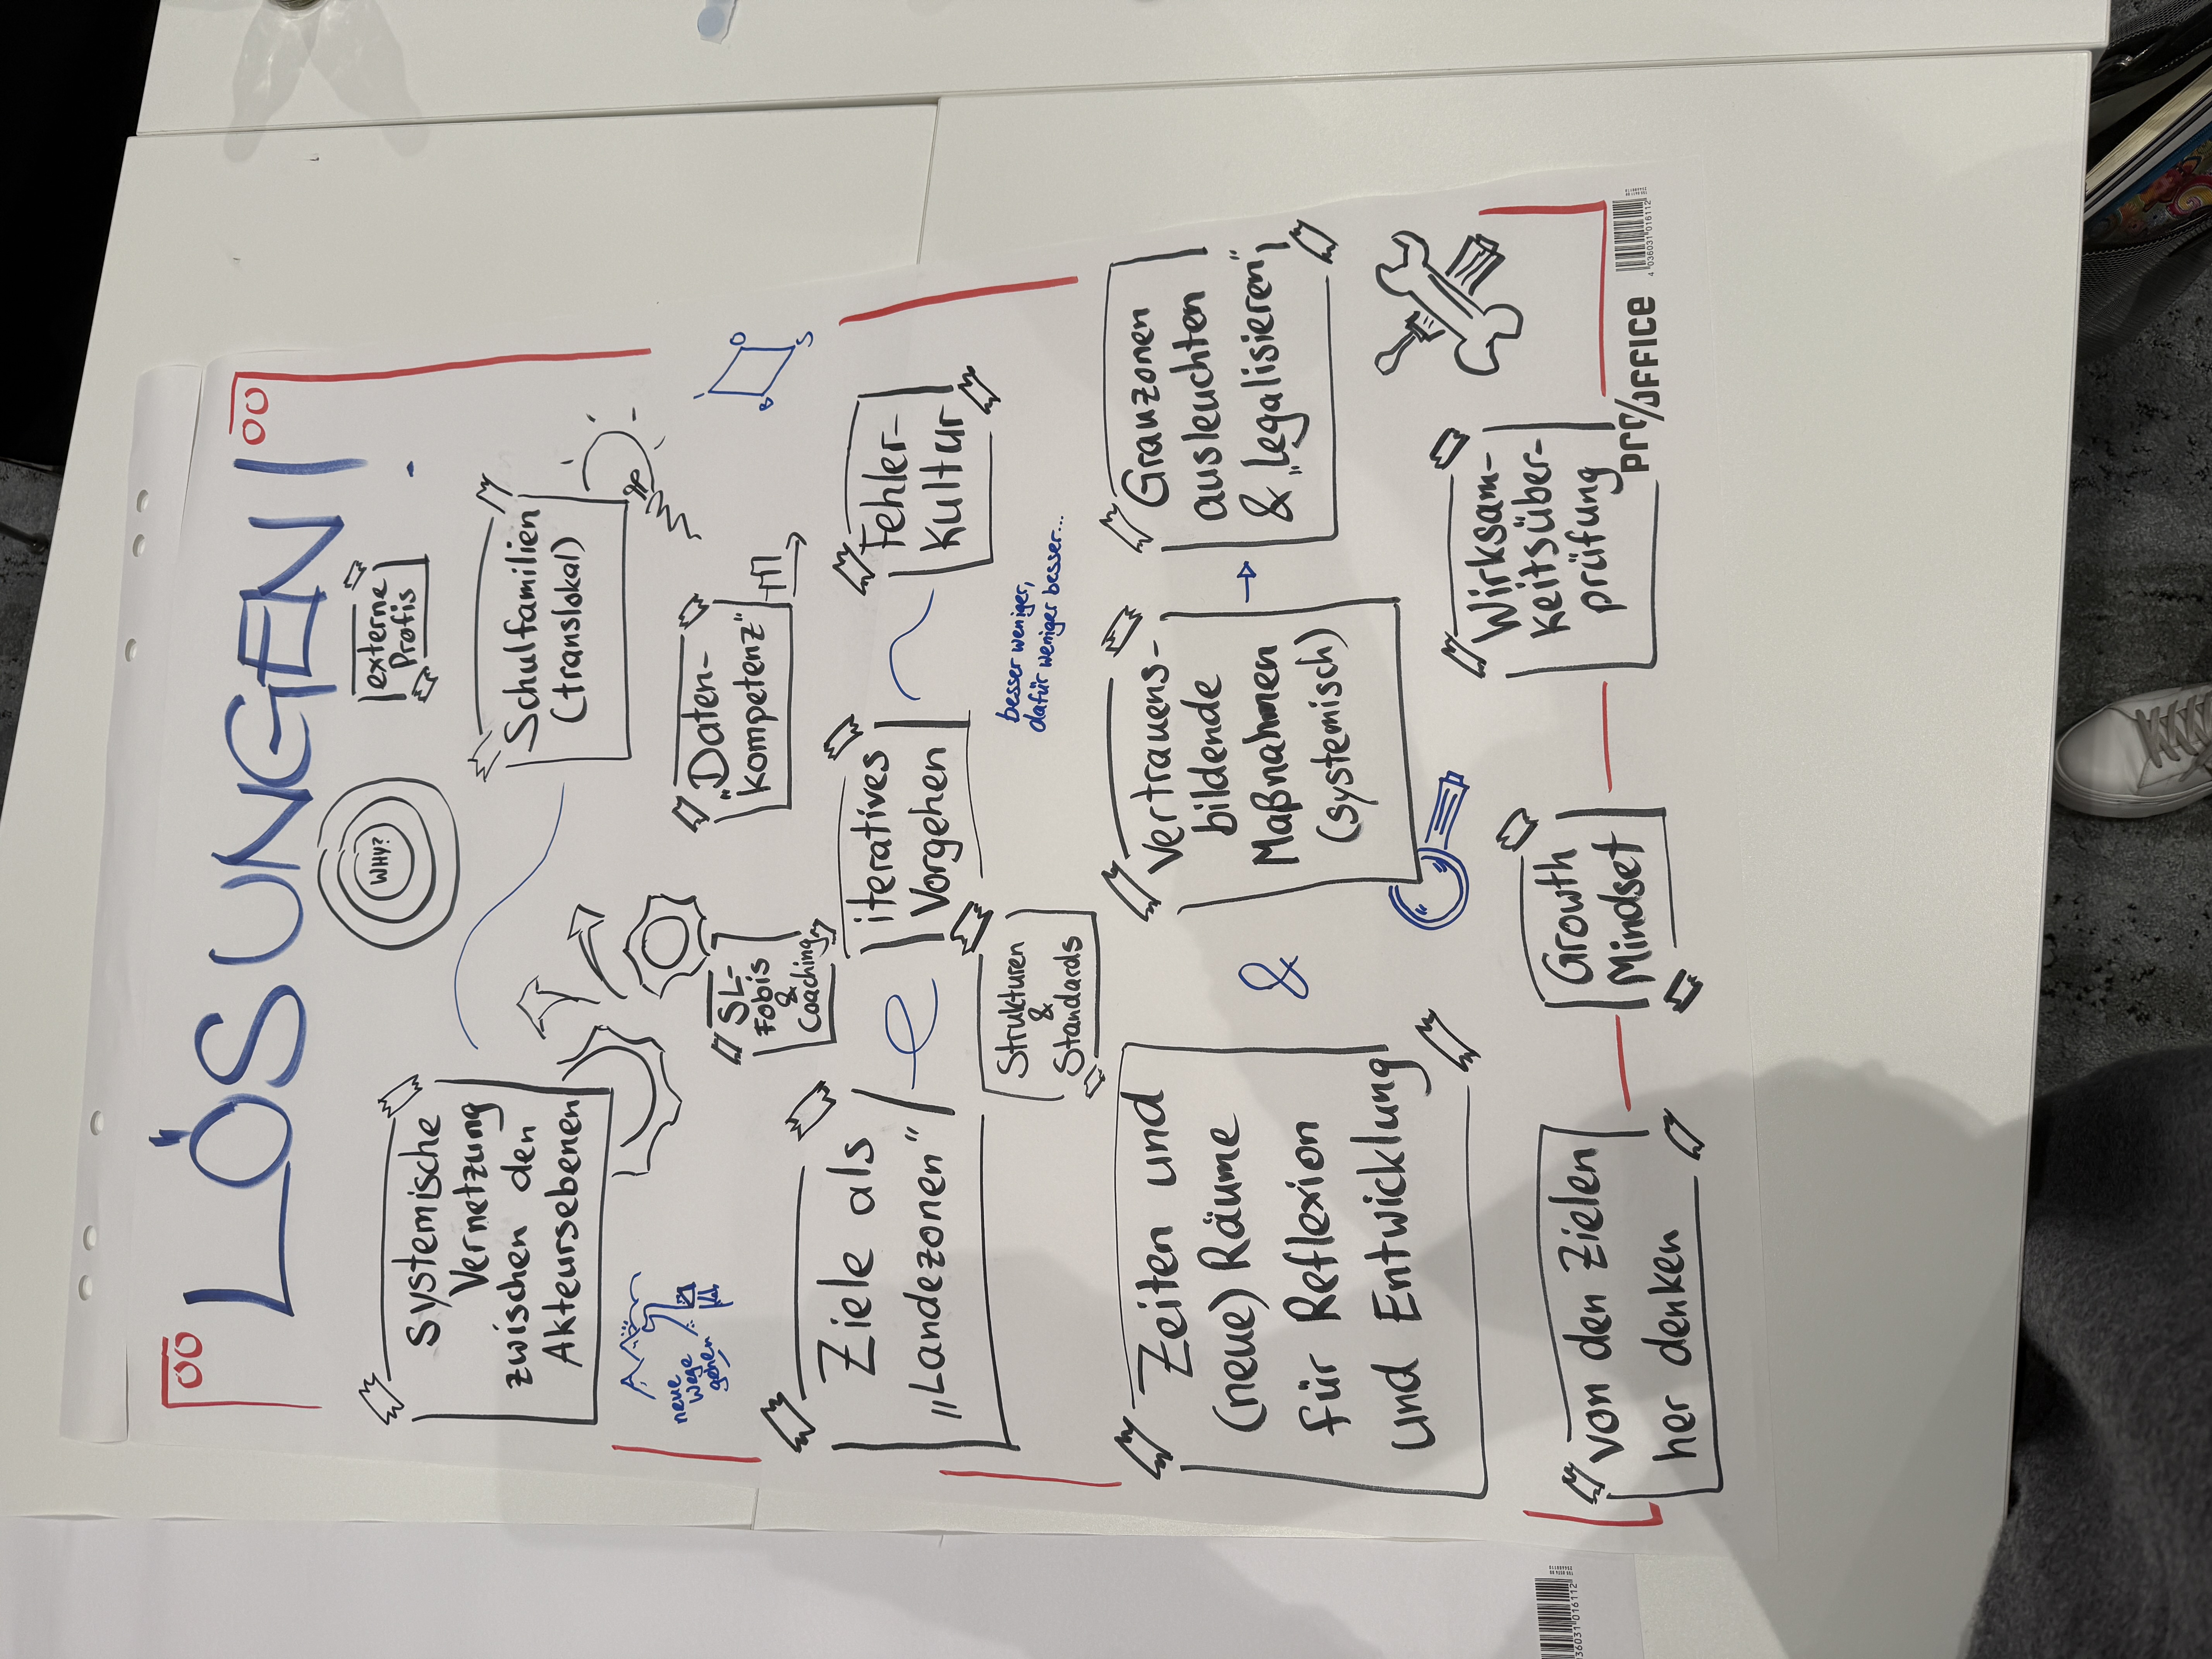 LÖSUNGEN!
WHY?
externe
Profis
Systemische
Vernetzung
zwischen den
Akteursebenen
Schulfamilien
(translokal)
neue
Wege
gehen
SL-
Fobis
&
Coaching
"Daten-
kompetenz"
O
S
Ziele als
„Landezonen"
iteratives
Vorgehen
Fehler-
kultur
Strukturen
&
Standards
besser weniger,
dafür weniger besser...
Zeiten und
(neue) Räume
für Reflexion
und Entwicklung
&
Vertrauens-
bildende
Maßnahmen
(systemisch)
Grauzonen
ausleuchten
& „legalisieren"
von den Zielen
her denken
Growth
Mindset
Wirksam-
keitsüber-
prüfung
pro/office
4 036031 016112
036031 016112